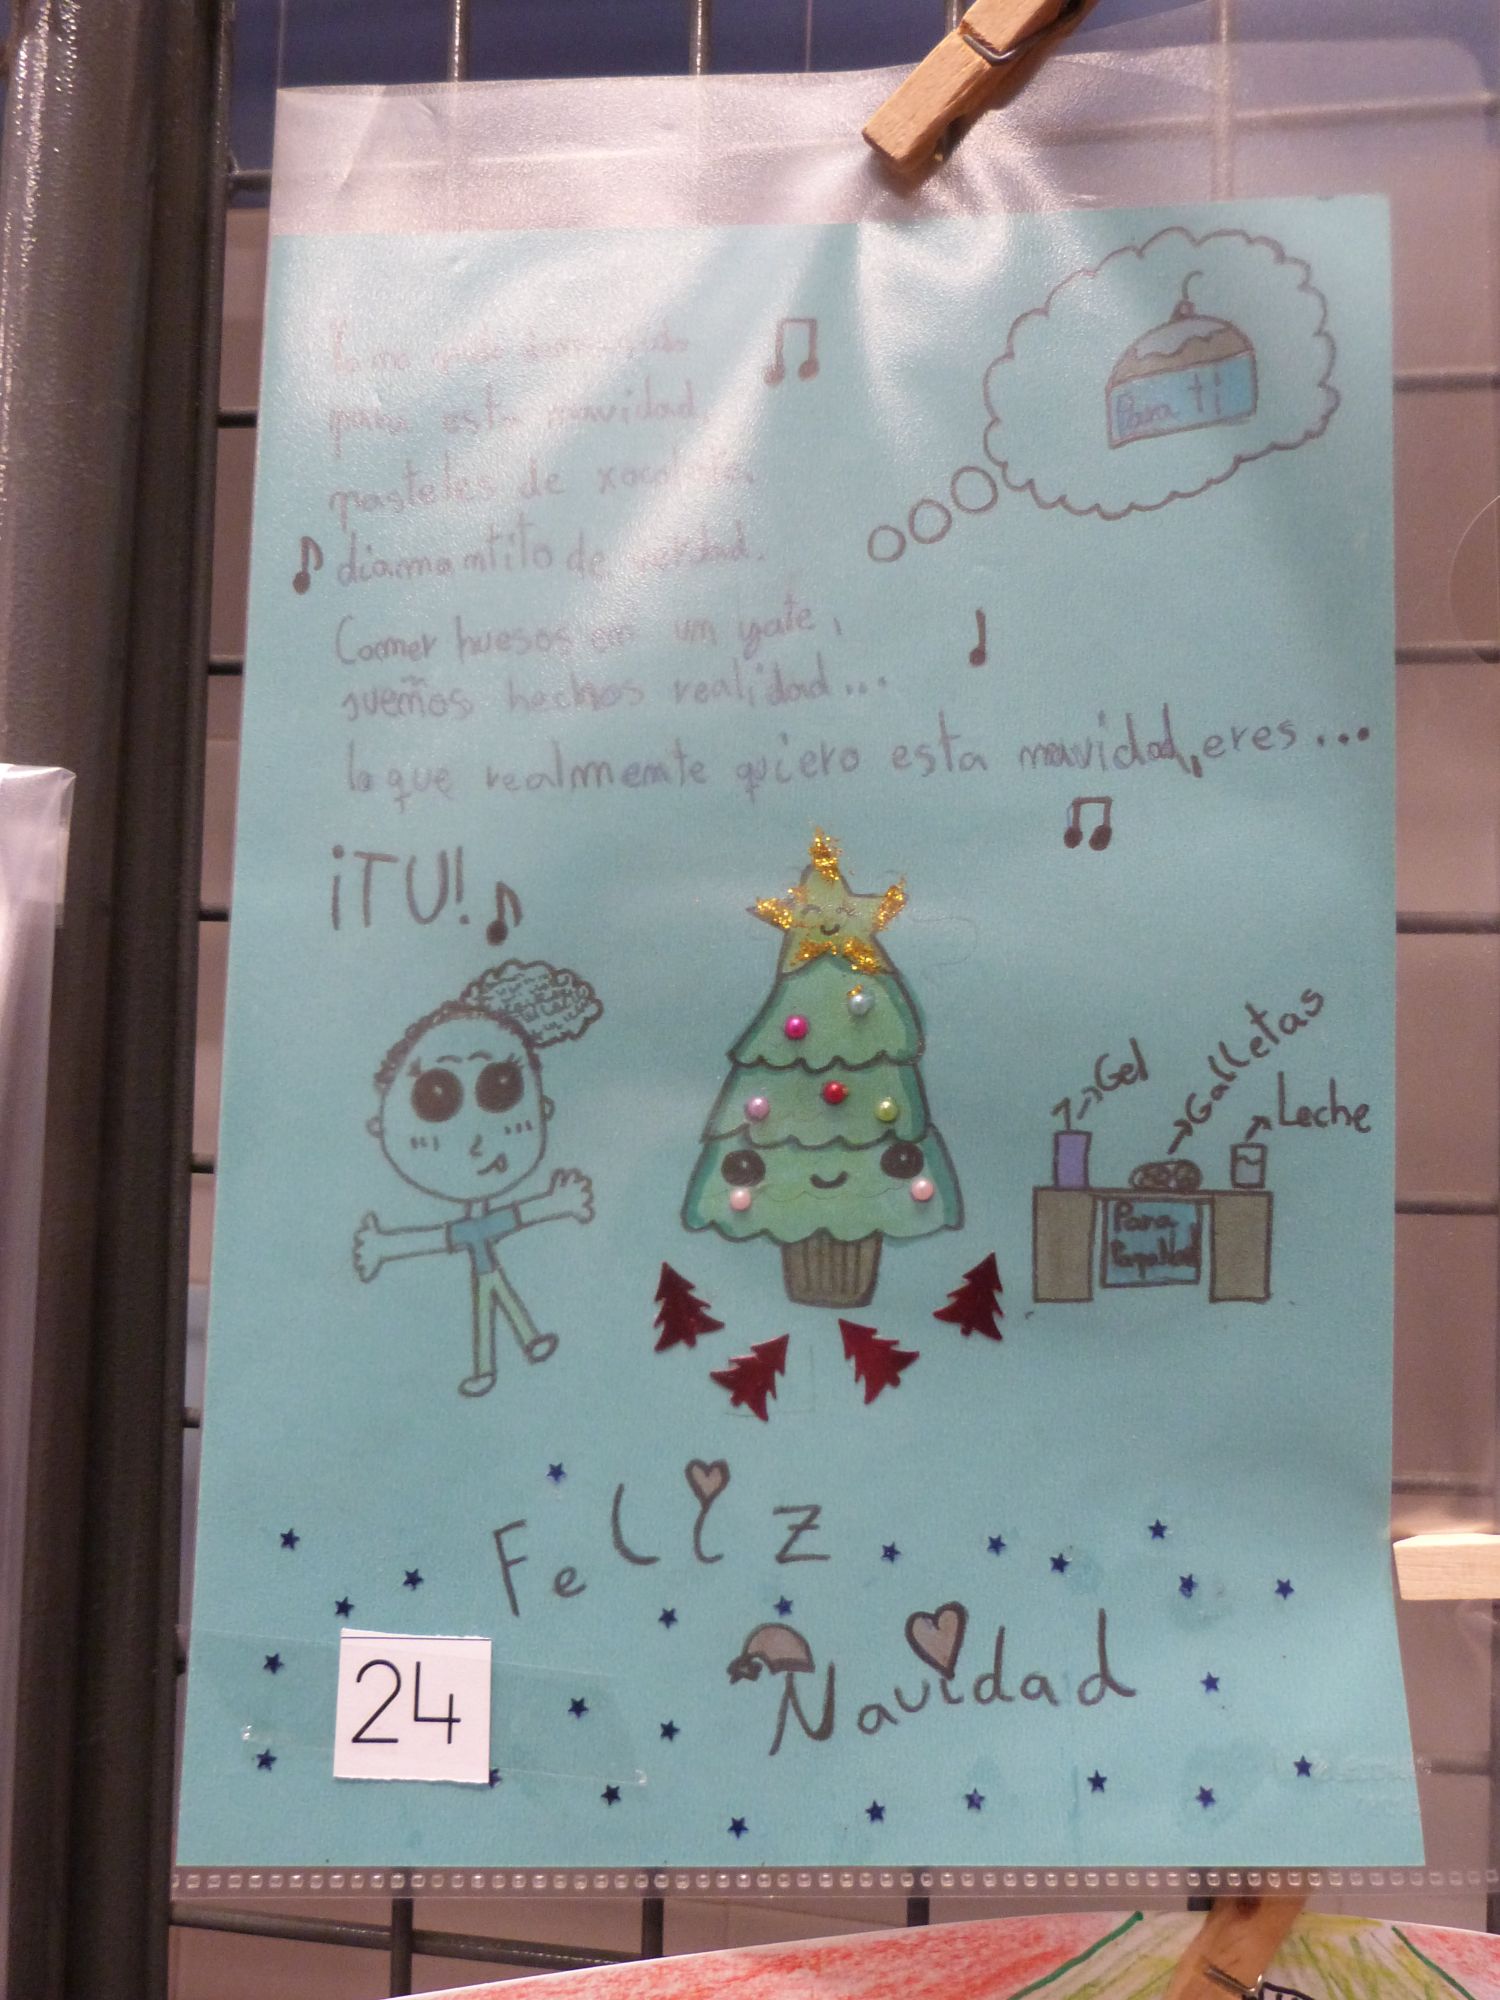 Yo no pido demasiado
para esta navidad,
pasteles de xocolata,
diamantito de verdad.
Comer huesos en un yate,
sueños hechos realidad...
lo que realmente quiero esta navidad, eres...
¡TU!
Para ti
Gel
Galletas
Leche
Para
Papa Noel
Feliz
Navidad
24